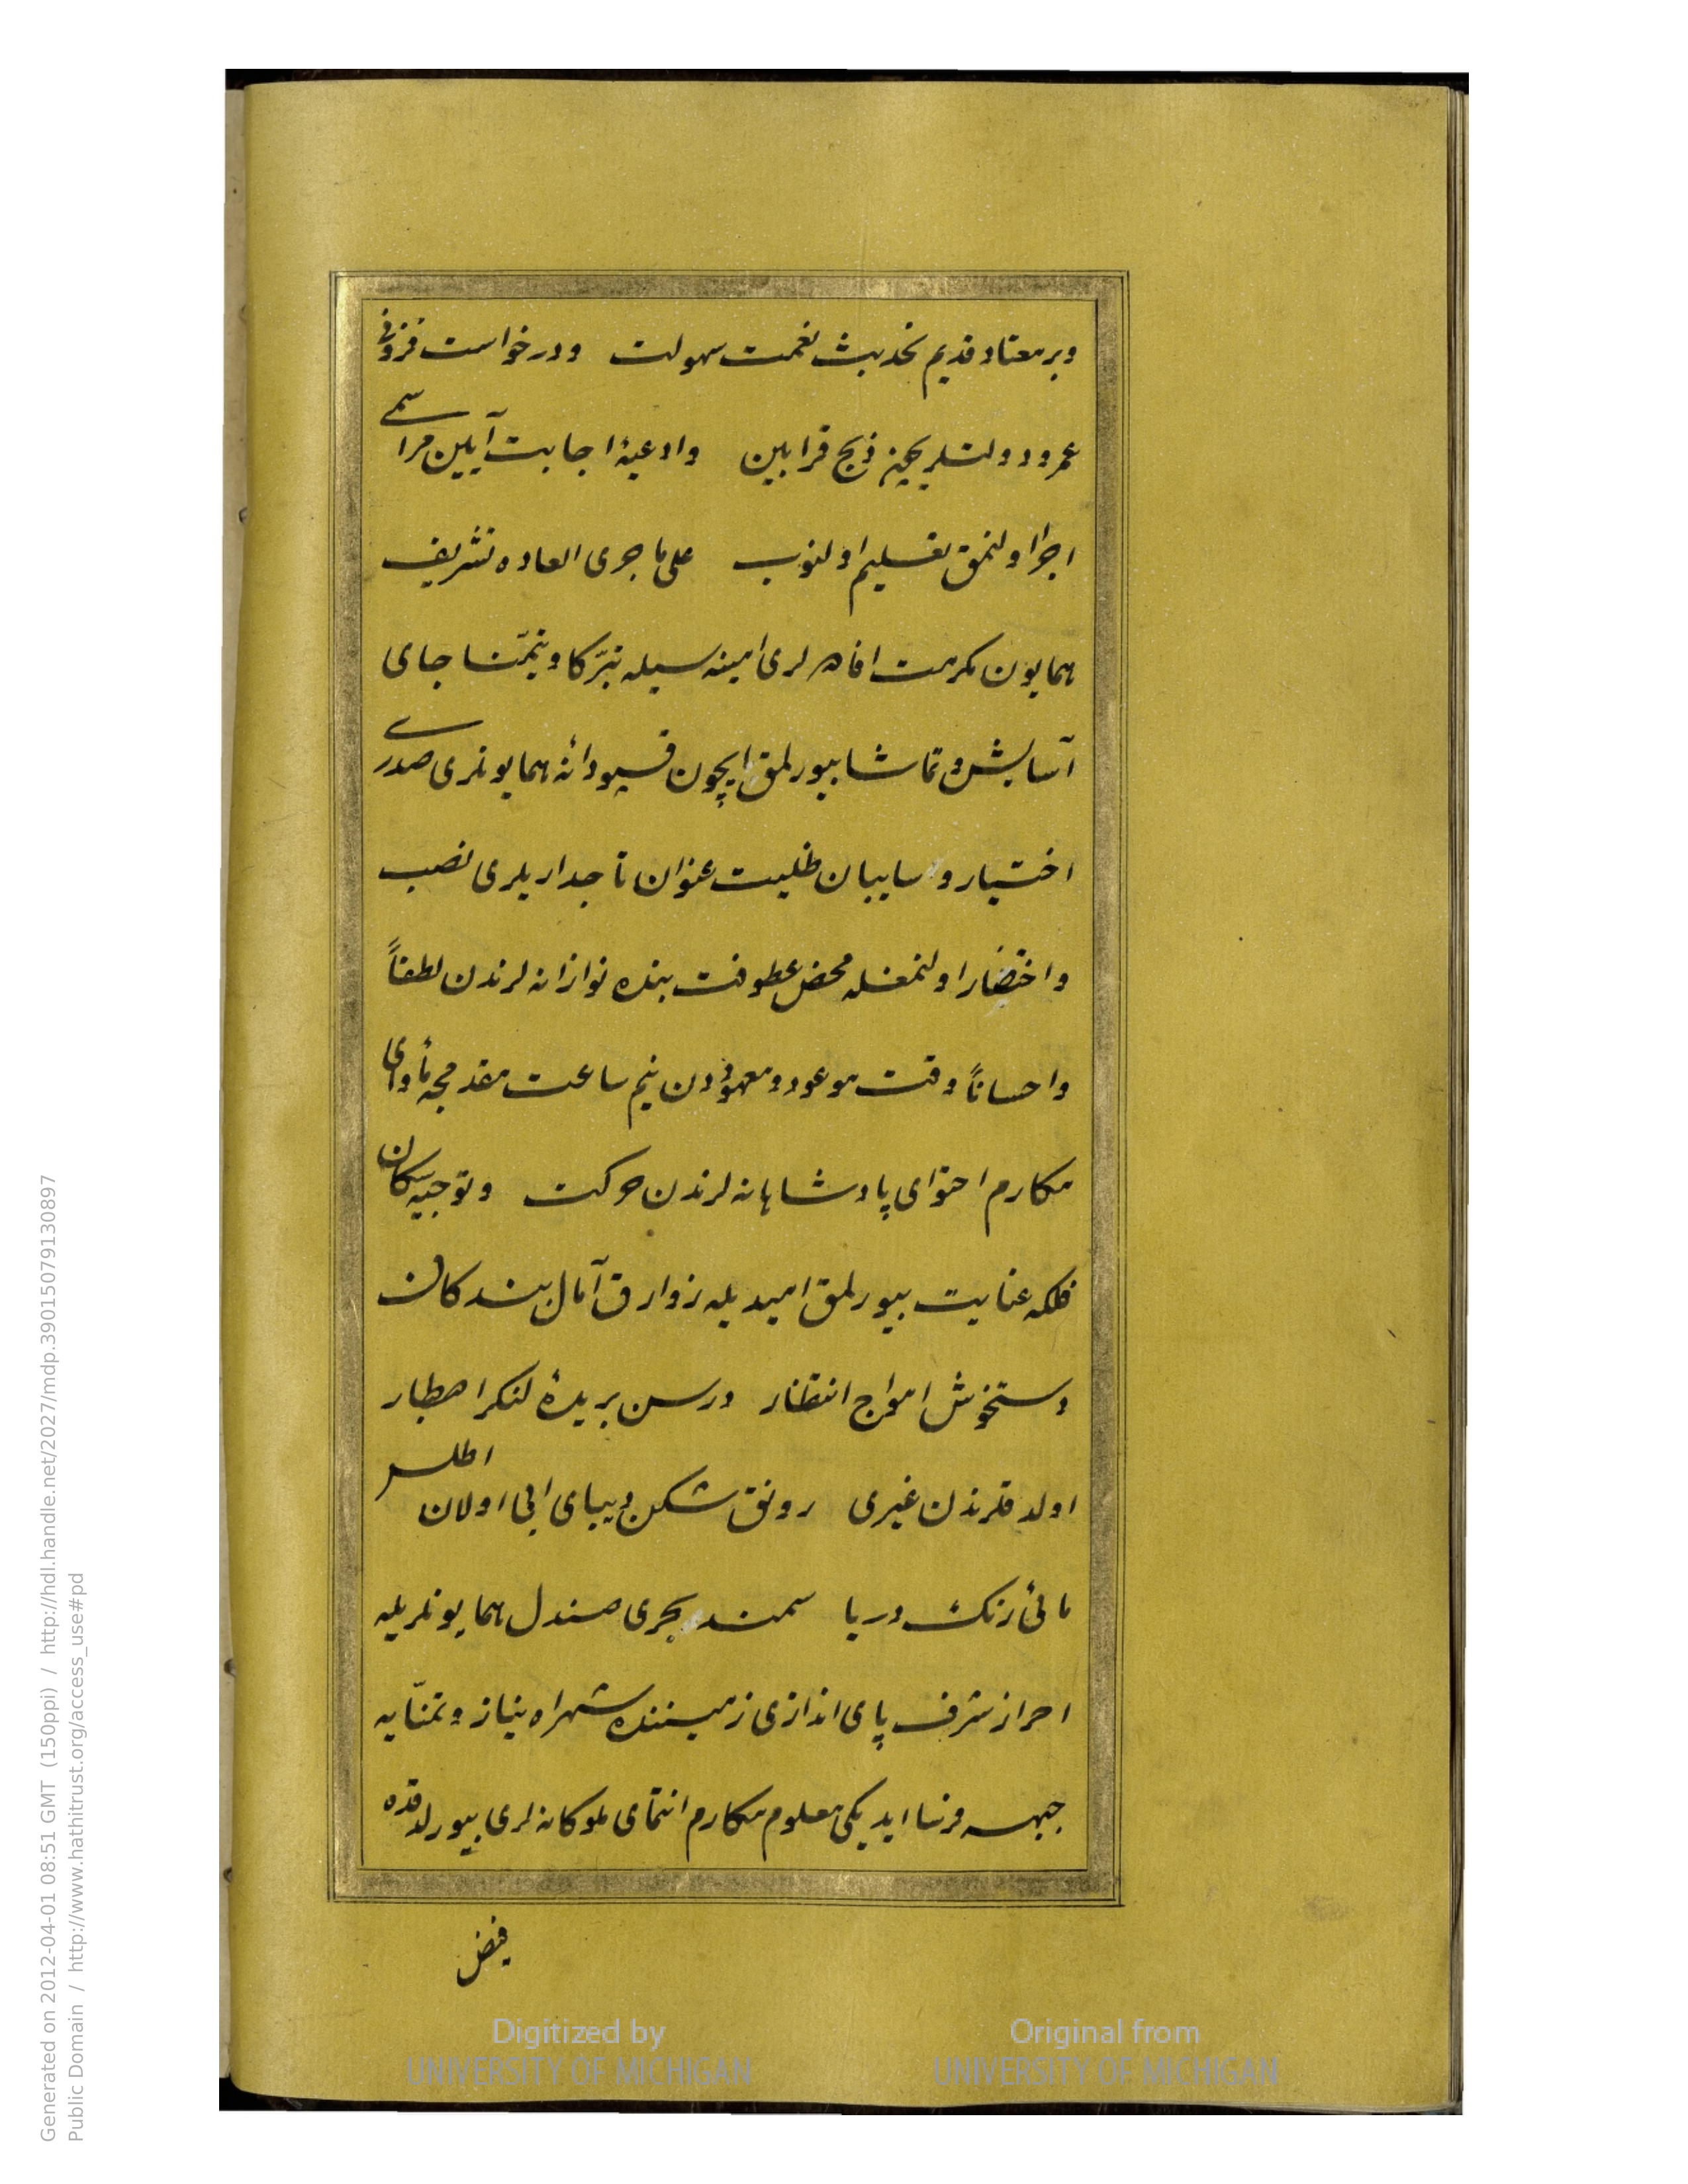 وبر معتاد قدیم تحدیث نعمت سهولت ودرخواست فزونی
عمر ودولتلریچین ذبح قرابین وادعیۀ اجابت آیین مراسمی
اجرا اولنمق تسلیم اولنوب علی ما جری العاده تشریف
همایون مکرمت افاهه لری امنیه سیله تبرّکا وتیمّنا جای
آسایش وتماشا بیورلمق ایچون قسپودانۀ همایونلری صدری
اختیار وسایبان ظلیت عنوان تاجداریلری نصب
واختضار اولنمغله محض عطوفت بنده نوازانه لرندن لطفاً
واحساناً وقت موعود ومعهوددن نیم ساعت مقدمجه مأوای
مکارم احتوای پادشاهانه لرندن حرکت وتوجیه سکان
فلکه عنایت بیورلمق امیدیله زوارق آمال بندکان
دستخوش امواج انتظار ورسن بریدۀ لنکر اصطبار
اولدقلرندن غیری رونق شکن دیبای آبی اولان اطلس
مائی رنک دریا سمند بحری صندل همایونلریله
احراز شرف پای اندازی زمیننده شهراه نیاز وتمنّایه
جبهه فرسا ایدیکی معلوم مکارم انتمای ملوکانه لری بیورلدقده
فیض
Digitized by
UNIVERSITY OF MICHIGAN
Original from
UNIVERSITY OF MICHIGAN
Generated on 2012-04-01 08:51 GMT (150ppi) / http://hdl.handle.net/2027/mdp.39015079130897
Public Domain / http://www.hathitrust.org/access_use#pd